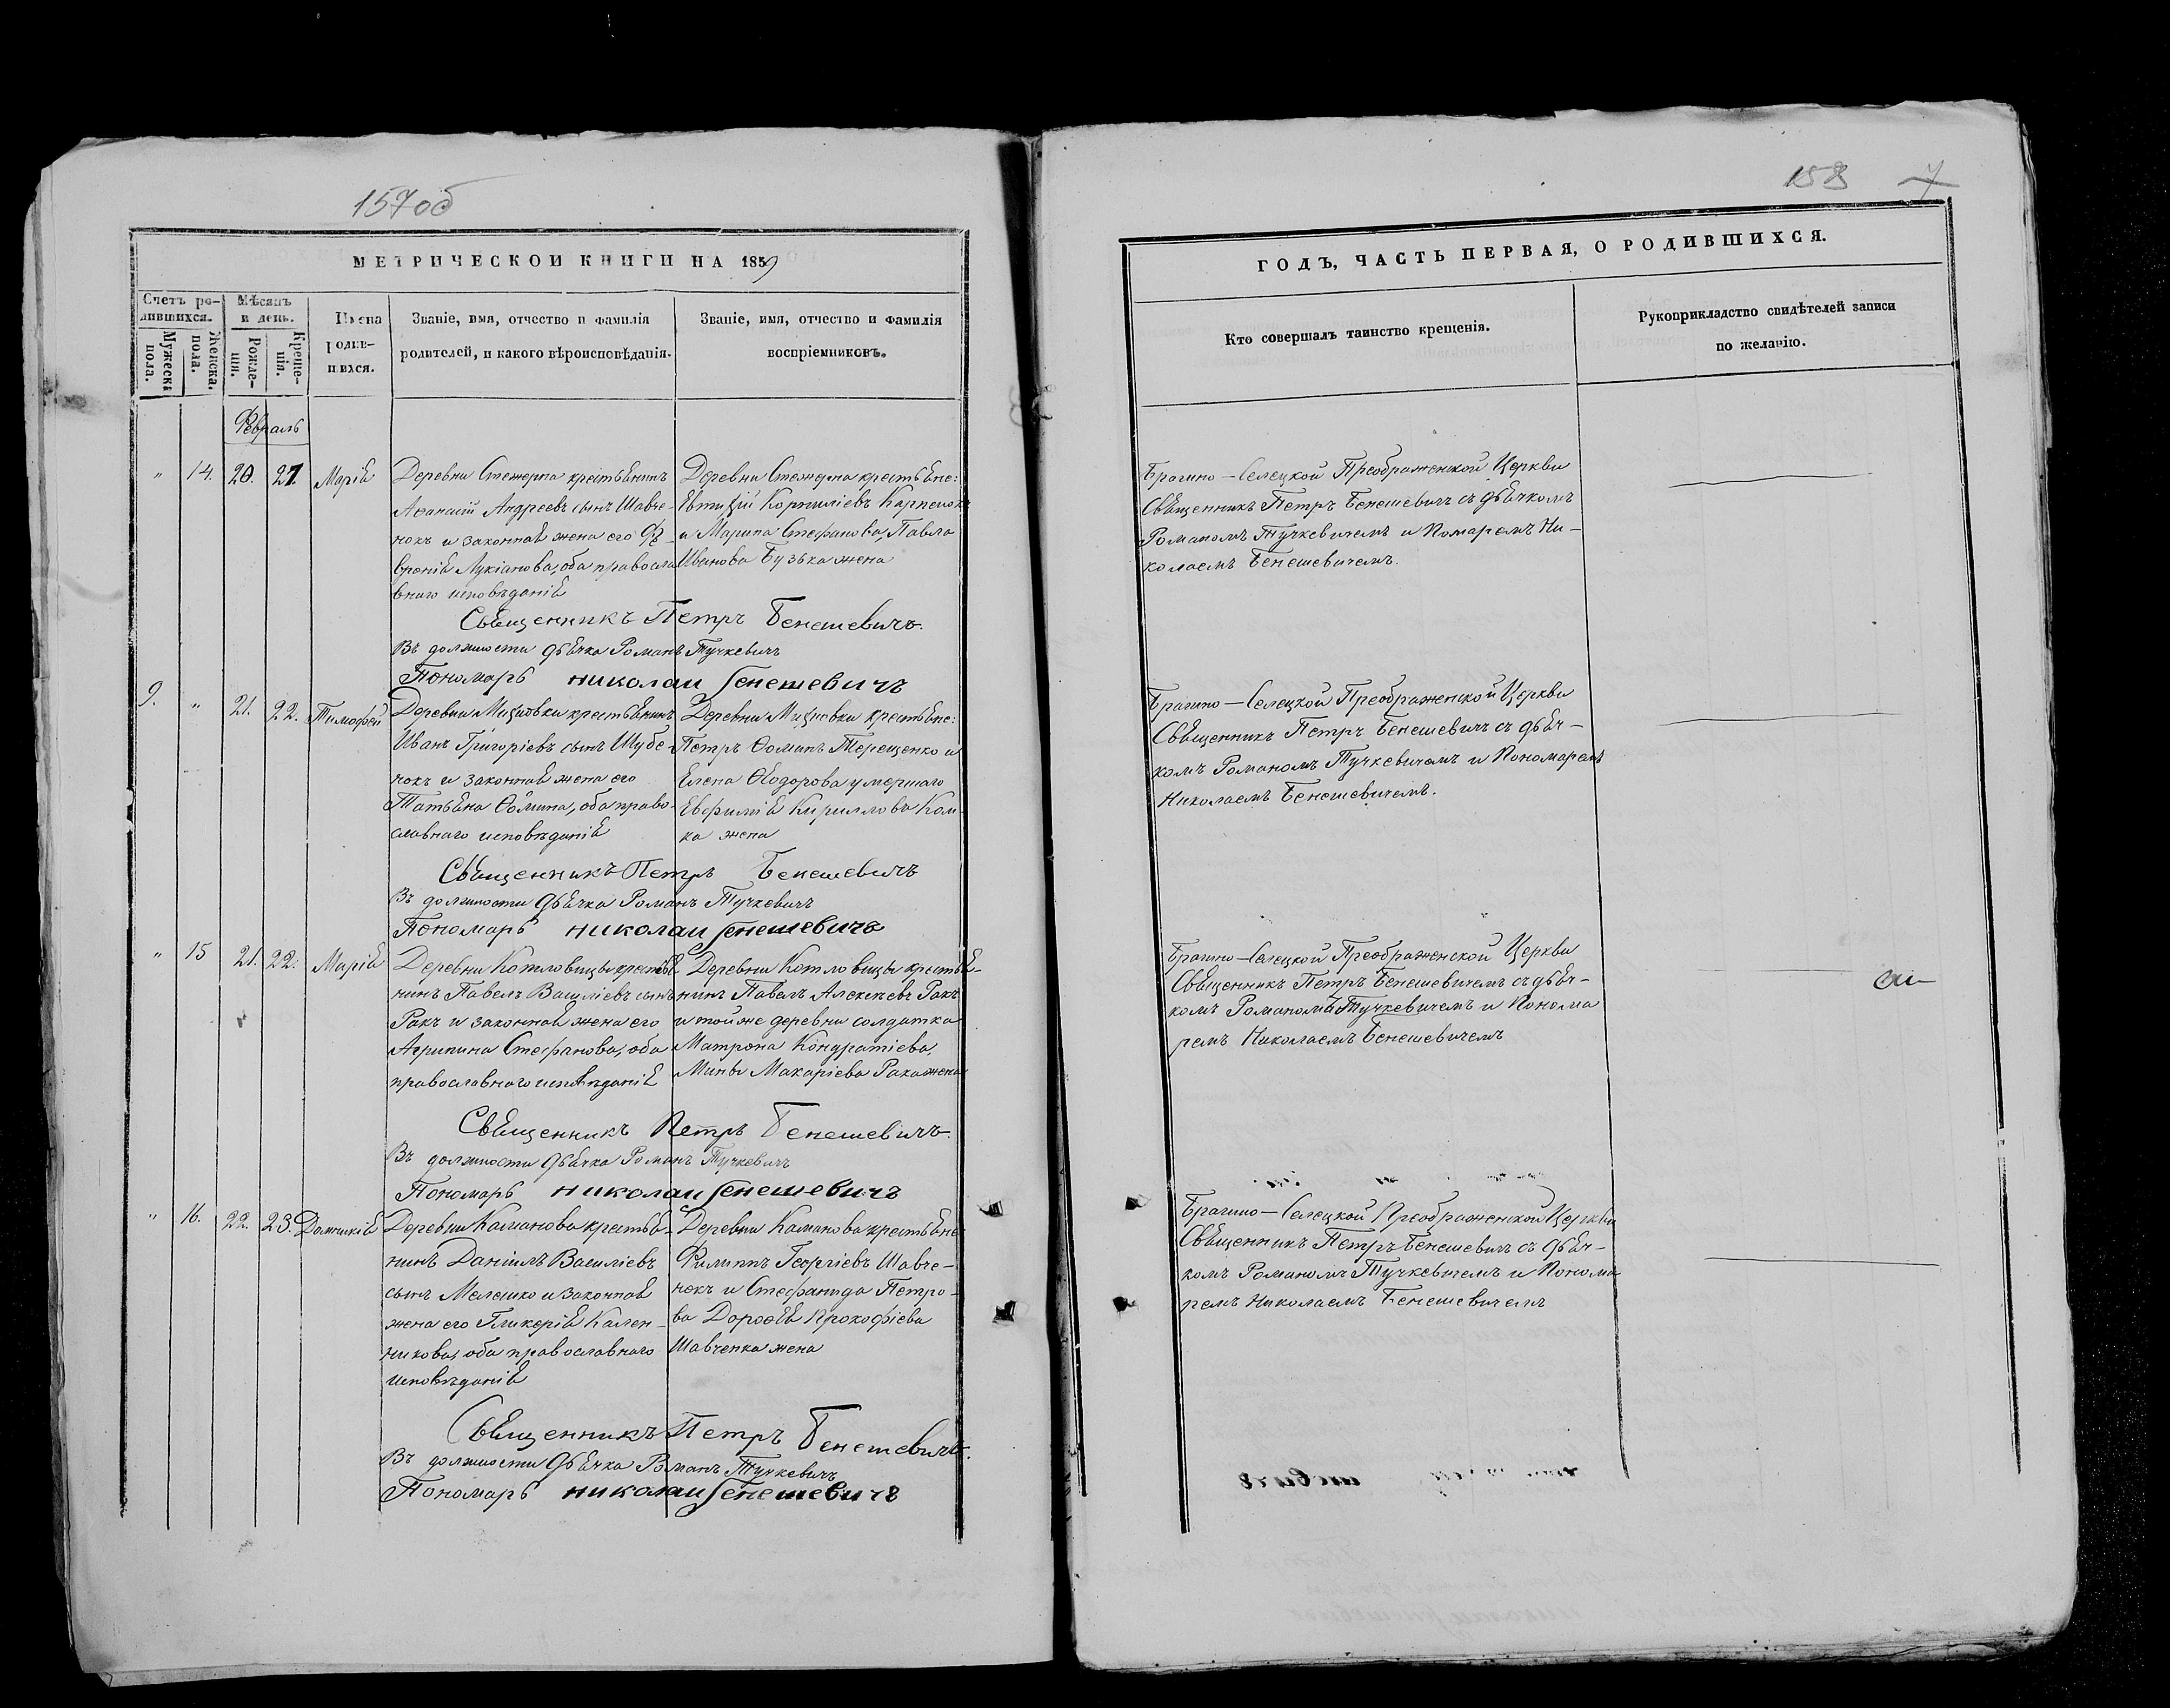 157об
МЕТРИЧЕСКОЙ КНИГИ НА 1859
Счетъ ро-
дившихся.
Мѣсяцъ
и день.
Мужеска
пола.
Женска.
пола.
Рожде-
нія.
Креще-
нія.
Имена
родив-
шихся.
Званіе, имя, отчество и фамилія
родителей, и какого вѣроисповѣданія.
Званіе, имя, отчество и фамилія
воспріемниковъ.
Февраль
" 14. 20. 21. Марія
Деревни Стежерна крестьянинъ
Аѳанасій Андреевъ сынъ Шавче-
нокъ и законная жена его Фе-
вронія Лукіанова, оба правосла
внаго исповѣданія
Деревни Стежерна крестьяне:
Евтихій Корниліевъ Карпенокъ
и Марина Стефанова, Павла
Иванова Бузька жена
Священникъ Петръ Бенешевичъ.
Въ должности дьячка Романъ Тучкевичъ
Пономарь Николай Бенешевичъ
9. " 21. 22. Тимофей
Деревни Мицновки крестьянинъ
Иванъ Григоріевъ сынъ Шубе-
нокъ и законная жена его
Татьяна Ѳомина, оба право-
славнаго исповѣданія
Деревни Мицновки крестьяне:
Петръ Ѳоминъ Терещенко и
Елена Ѳеодорова умершаго
Евфимія Кириллова Ком
ка жена
Священникъ Петръ Бенешевичъ
Въ должности дьячка Романъ Тучкевичъ
Пономарь Николай Бенешевичъ
" 15 21. 22. Марія
Деревни Котловицы крестья
нинъ Павелъ Василіевъ сынъ
Ракъ и законная жена его
Агрипина Стефанова, оба
православнаго исповѣданія
Деревни Котловицы крестья-
нинъ Павелъ Алексѣевъ Ракъ
и той же деревни солдатка
Матрона Кондратіева,
Мины Макаріева Рака жена
Священникъ Петръ Бенешевичъ.
Въ должности дьячка Романъ Тучкевичъ
Пономарь Николай Бенешевичъ
" 16. 22. 23. Домникія
Деревни Каманова крестья-
нинъ Даніилъ Василіевъ
сынъ Мелешко и законная
жена его Гликерія Кален-
никова, оба православнаго
исповѣданія
Деревни Каманова крестьяне
Филиппъ Георгіевъ Шавче-
нокъ и Стефанида Петро-
ва Дороѳея Прокофіева
Шавченка жена
Священникъ Петръ Бенешевичъ.
Въ должности дьячка Романъ Тучкевичъ
Пономарь Николай Бенешевичъ
158 7
ГОДЪ, ЧАСТЬ ПЕРВАЯ, О РОДИВШИХСЯ.
Кто совершалъ таинство крещенія.
Рукоприкладство свидѣтелей записи
по желанію.
Брагино-Селецкой Преображенской Церкви
Священникъ Петръ Бенешевичъ съ дьячкомъ
Романомъ Тучкевичемъ и Помаремъ Ни-
колаемъ Бенешевичемъ.
Брагино-Селецкой Преображенской Церкви
Священникъ Петръ Бенешевичъ съ дьяч-
комъ Романомъ Тучкевичемъ и Пономаремъ
Николаемъ Бенешевичемъ.
Брагино-Селецкой Преображенской Церкви
Священникъ Петръ Бенешевичемъ съ дьяч-
комъ Романомъ Тучкевичемъ и Понома
ремъ Николаемъ Бенешевичемъ
Брагино-Селецкой Преображенской Церкви
Священникъ Петръ Бенешевичъ съ дьяч-
комъ Романомъ Тучкевичемъ и Понома
ремъ Николаемъ Бенешевичемъ